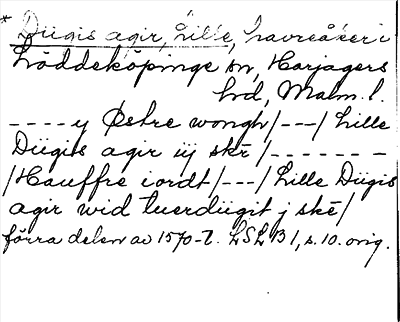 * Düigis agir, Lille, havreåker i
Löddeköpinge sn, Harjagers
hd, Malm. l.
- - - - y Østre wongh/---/ Lille
Düigis agir iij skr̄ /- - - - - - -
/Hauffre iordt/---/ Lille Düigis
agir wid tuerdüigit j skē/
förra delen av 1570-t. LSLB 1, s. 10. orig.